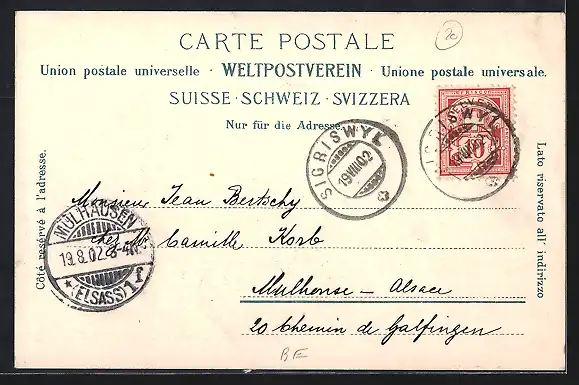 2c
CARTE POSTALE
Union postale universelle · WELTPOSTVEREIN · Unione postale universale.
SUISSE · SCHWEIZ · SVIZZERA
Nur für die Adresse.
Côté reservé à l'adresse.
Lato riservato all' indirizzo
SIGRISWYL
19.VIII.02
SIGRISWYL
19.VIII.02
10
MÜLHAUSEN
19.8.02.
*(ELSASS)1 f
Monsieur Jean Bertschy
chez Mr Camille Korb
Mulhouse - Alsace
20 Chemin de Galfingen
BE